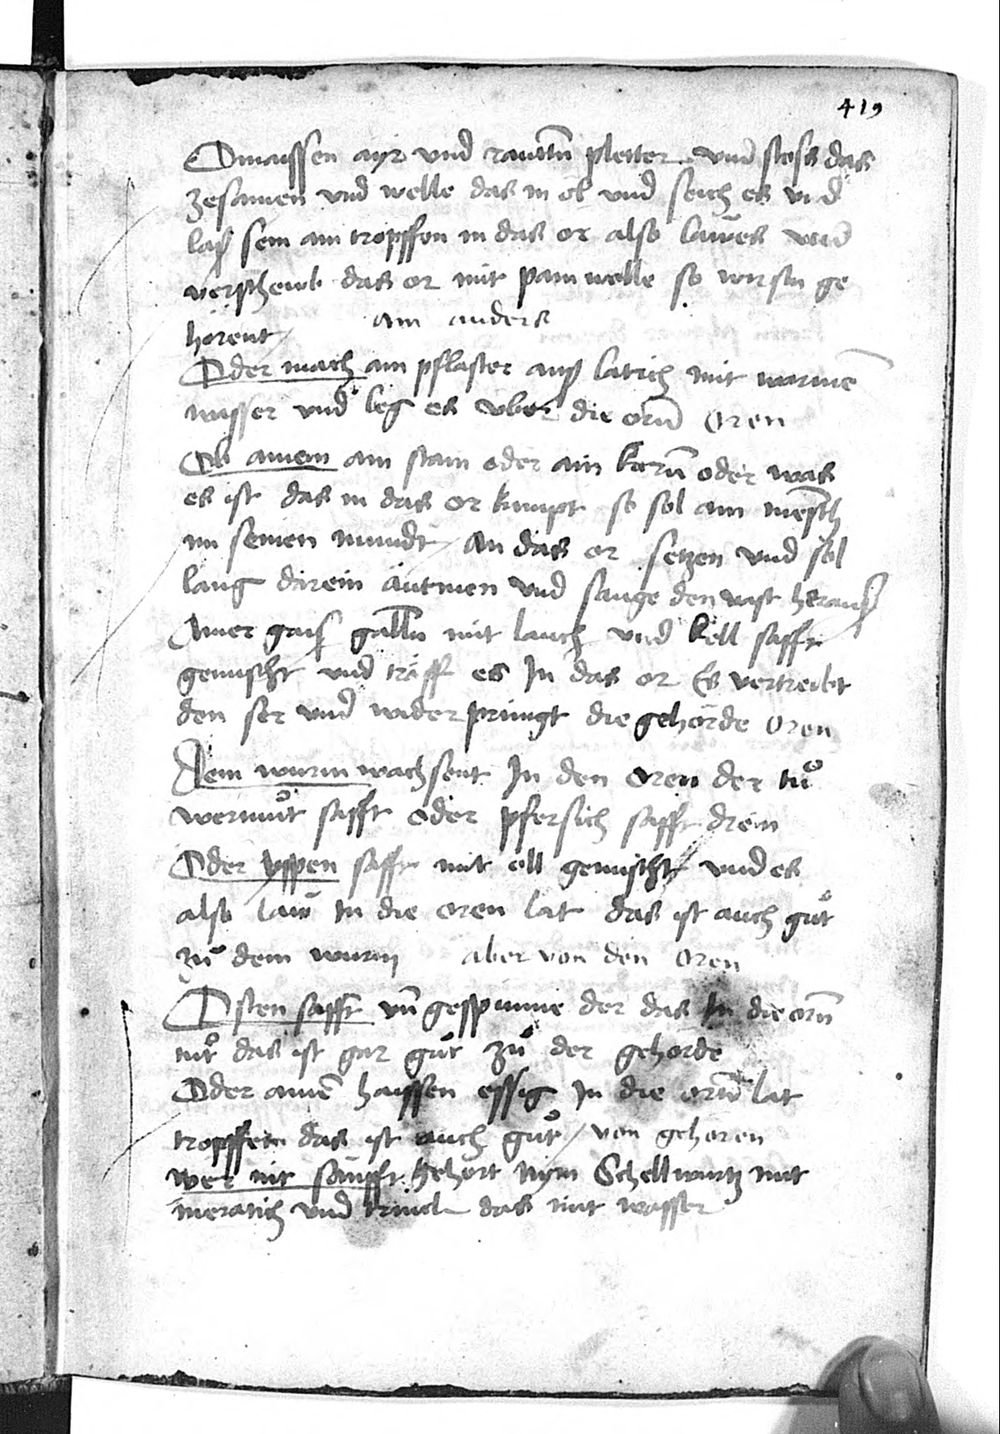 419
Omaissen ayr vnd rauttn̄ pletter vnd stoss das
zesamen vnd welle das in öl vnd seich es vnd
laß sein ain tropffen in das or also lawes vnd
verscheub das or mit pamwolle so wirstu ge
horent / ain anders
Oder mach ain pflaster auß latich mit warmē
wasser vnd leg es vber die orn̄ Oren
Ob ainem ain stain oder ain korn̄ oder was
es ist das in das or kumpt so sol ain mensch
mit seinen mundt an das or setzen vnd sol
lang darein äutmen vnd sauge den vast herauß
Ainer gaiß galln̄ mit lauch vnd köll safft
gemischt vnd träff es In das or Es vertreibt
den ser vnd wider pringt die gehörde Oren
Wem wurm wachsent In den oren der tuͦ
wermuͦt safft oder pfersich safft drein
Oder yspen safft mit öll gemischt vnd es
also law̄ In die oren lat das ist auch guͦt
zuͦ dem wurm aber von den Oren
Osten safft vn̄ gespunne der das In die orn̄
tuͦt das ist gar guͦt zuͦ der gehörde
Oder ainē haissen essig In die orn̄ lat
tropffen das ist auch guͦt / von gehoren
wer nit sanfft gehort Nym Schellwurtz mit
meratich vnd trinck das mit wasser